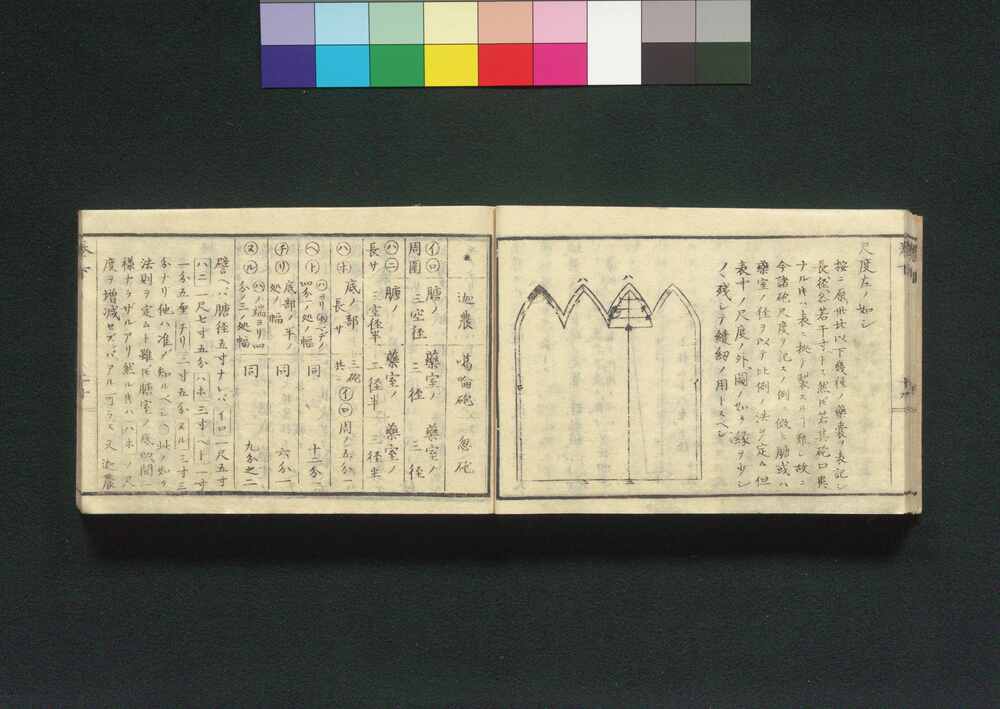 尺度左ノ如シ
按ニ原世此以下幾種ノ藥嚢ヲ表記シ
長径各若干寸トス然𪜈若其砲口異
ナル𪜈ハ表ニ拠テ製スルヿ難シ故ニ
今諸砲尺度ヲ記スノ例ニ倣ヒ膅或ハ
藥室ノ径ヲ以テ比例ノ法ヲ定ム但
表中ノ尺度ノ外圖ノ如ク縁ヲ少シ
ノミ残シテ縫紉ノ用トスベシ
迦農 噶崙砲 忽砲
イロ 膅ノ 藥室ノ 藥室ノ
周圍 三空径 三径 三径
ハニ 膅ノ 藥室ノ 藥室ノ
長サ 三空径半 二径半 三径半
ハホ 底ノ部 三砲 イロ周ノ五分一
長サ 共ニ
ヘト ハヨリ ヘデノ 同 十二分一
四分一処ノ幅
チリ 底部ノ半ノ 同 六分一
処ノ幅
ヌル ハノ端ヨリ四 同 九分之二
分ノ三ノ処幅
譬ヘバ膅径五寸ナレバイロ一尺五寸
ハニ一尺七寸五分ハホ三寸ヘト一寸
一分五重チリ二寸五分ヌル三寸三
分ナリ他ハ准ノ知ルベシ 此ノ如ク
法則ヲ定ムト雖𪜈膅室ノ底
様ナラザルアリ然ル𪜈ハハホノ尺
度ヲ増減セズバアル可ラズ又迦農